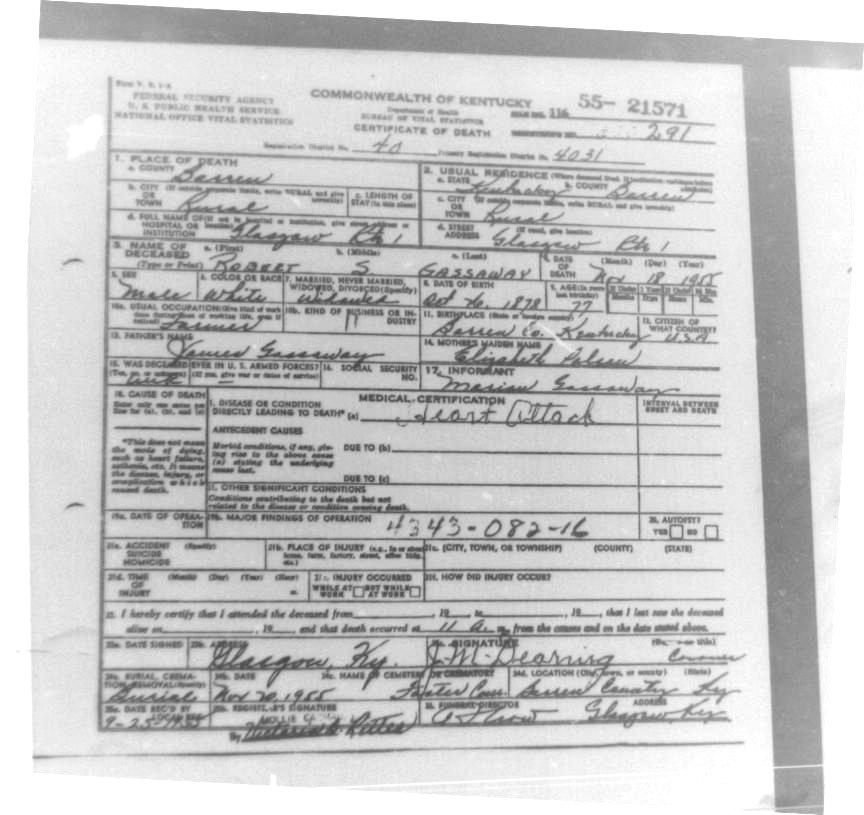 Form V. S. 1-A
FEDERAL SECURITY AGENCY
U. S. PUBLIC HEALTH SERVICE
NATIONAL OFFICE VITAL STATISTICS
COMMONWEALTH OF KENTUCKY
Department of Health
BUREAU OF VITAL STATISTICS
CERTIFICATE OF DEATH
116 55- 21571
291
Registration District No. 40 Primary Registration District No. 4031
1. PLACE OF DEATH
a. COUNTY Barren
2. USUAL RESIDENCE (Where deceased lived. If institution: residence before
a. STATE Kentucky b. COUNTY Barren
b. CITY (If outside corporate limits, write RURAL and give township)
OR
TOWN Rural
c. LENGTH OF STAY (in this place)
c. CITY (If outside corporate limits, write RURAL and give township)
OR
TOWN Rural
d. FULL NAME OF (If not in hospital or institution, give street address or location)
HOSPITAL OR
INSTITUTION Glasgow Rt 1
d. STREET ADDRESS (If rural, give location)
Glasgow Rt 1
3. NAME OF DECEASED (Type or Print)
a. (First) b. (Middle) c. (Last)
ROBERT S GASSAWAY
4. DATE OF DEATH (Month) (Day) (Year)
Nov 18, 1955
5. SEX Male
6. COLOR OR RACE White
7. MARRIED, NEVER MARRIED, WIDOWED, DIVORCED (Specify) Widowed
8. DATE OF BIRTH Oct 26, 1878
9. AGE (In years last birthday) 77
10a. USUAL OCCUPATION (Give kind of work done during most of working life, even if retired) Farmer
10b. KIND OF BUSINESS OR INDUSTRY
11. BIRTHPLACE (State or foreign country) Barren Co. Kentucky
12. CITIZEN OF WHAT COUNTRY? U.S.A
13. FATHER'S NAME James Gassaway
14. MOTHER'S MAIDEN NAME Elizabeth
15. WAS DECEASED EVER IN U. S. ARMED FORCES?
(Yes, no, or unknown) (If yes, give war or dates of service)
16. SOCIAL SECURITY NO.
17. INFORMANT Marian Gassaway
18. CAUSE OF DEATH
Enter only one cause per line for (a), (b), and (c)
MEDICAL CERTIFICATION
INTERVAL BETWEEN ONSET AND DEATH
I. DISEASE OR CONDITION DIRECTLY LEADING TO DEATH* (a) Heart Attack
*This does not mean the mode of dying, such as heart failure, asthenia, etc. It means the disease, injury, or complication which caused death.
ANTECEDENT CAUSES
Morbid conditions, if any, giving rise to the above cause (a) stating the underlying cause last.
DUE TO (b)
DUE TO (c)
II. OTHER SIGNIFICANT CONDITIONS
Conditions contributing to the death but not related to the disease or condition causing death.
19a. DATE OF OPERATION
19b. MAJOR FINDINGS OF OPERATION
4343-082-16
20. AUTOPSY?
YES NO
21a. ACCIDENT (Specify)
SUICIDE
HOMICIDE
21b. PLACE OF INJURY (e.g., in or about home, farm, factory, street, office bldg. etc.)
21c. (CITY, TOWN, OR TOWNSHIP) (COUNTY) (STATE)
21d. TIME OF INJURY (Month) (Day) (Year) (Hour) m.
21e. INJURY OCCURRED
WHILE AT WORK NOT WHILE AT WORK
21f. HOW DID INJURY OCCUR?
22. I hereby certify that I attended the deceased from , 19 , to , 19 , that I last saw the deceased
alive on , 19 , and that death occurred at 11 a. m., from the causes and on the date stated above.
23a. DATE SIGNED
23b. ADDRESS Glasgow, Ky.
23c. SIGNATURE J. M. Dearing Coroner
24a. BURIAL, CREMATION, REMOVAL (Specify) Burial
24b. DATE Nov 20, 1955
24c. NAME OF CEMETERY OR CREMATORY
24d. LOCATION (City, town, or county) (State) Barren County Ky
25a. DATE REC'D BY LOCAL REG.
25b. REGISTRAR'S SIGNATURE
MOLLIE
By
26. FUNERAL DIRECTOR
ADDRESS Glasgow, Ky